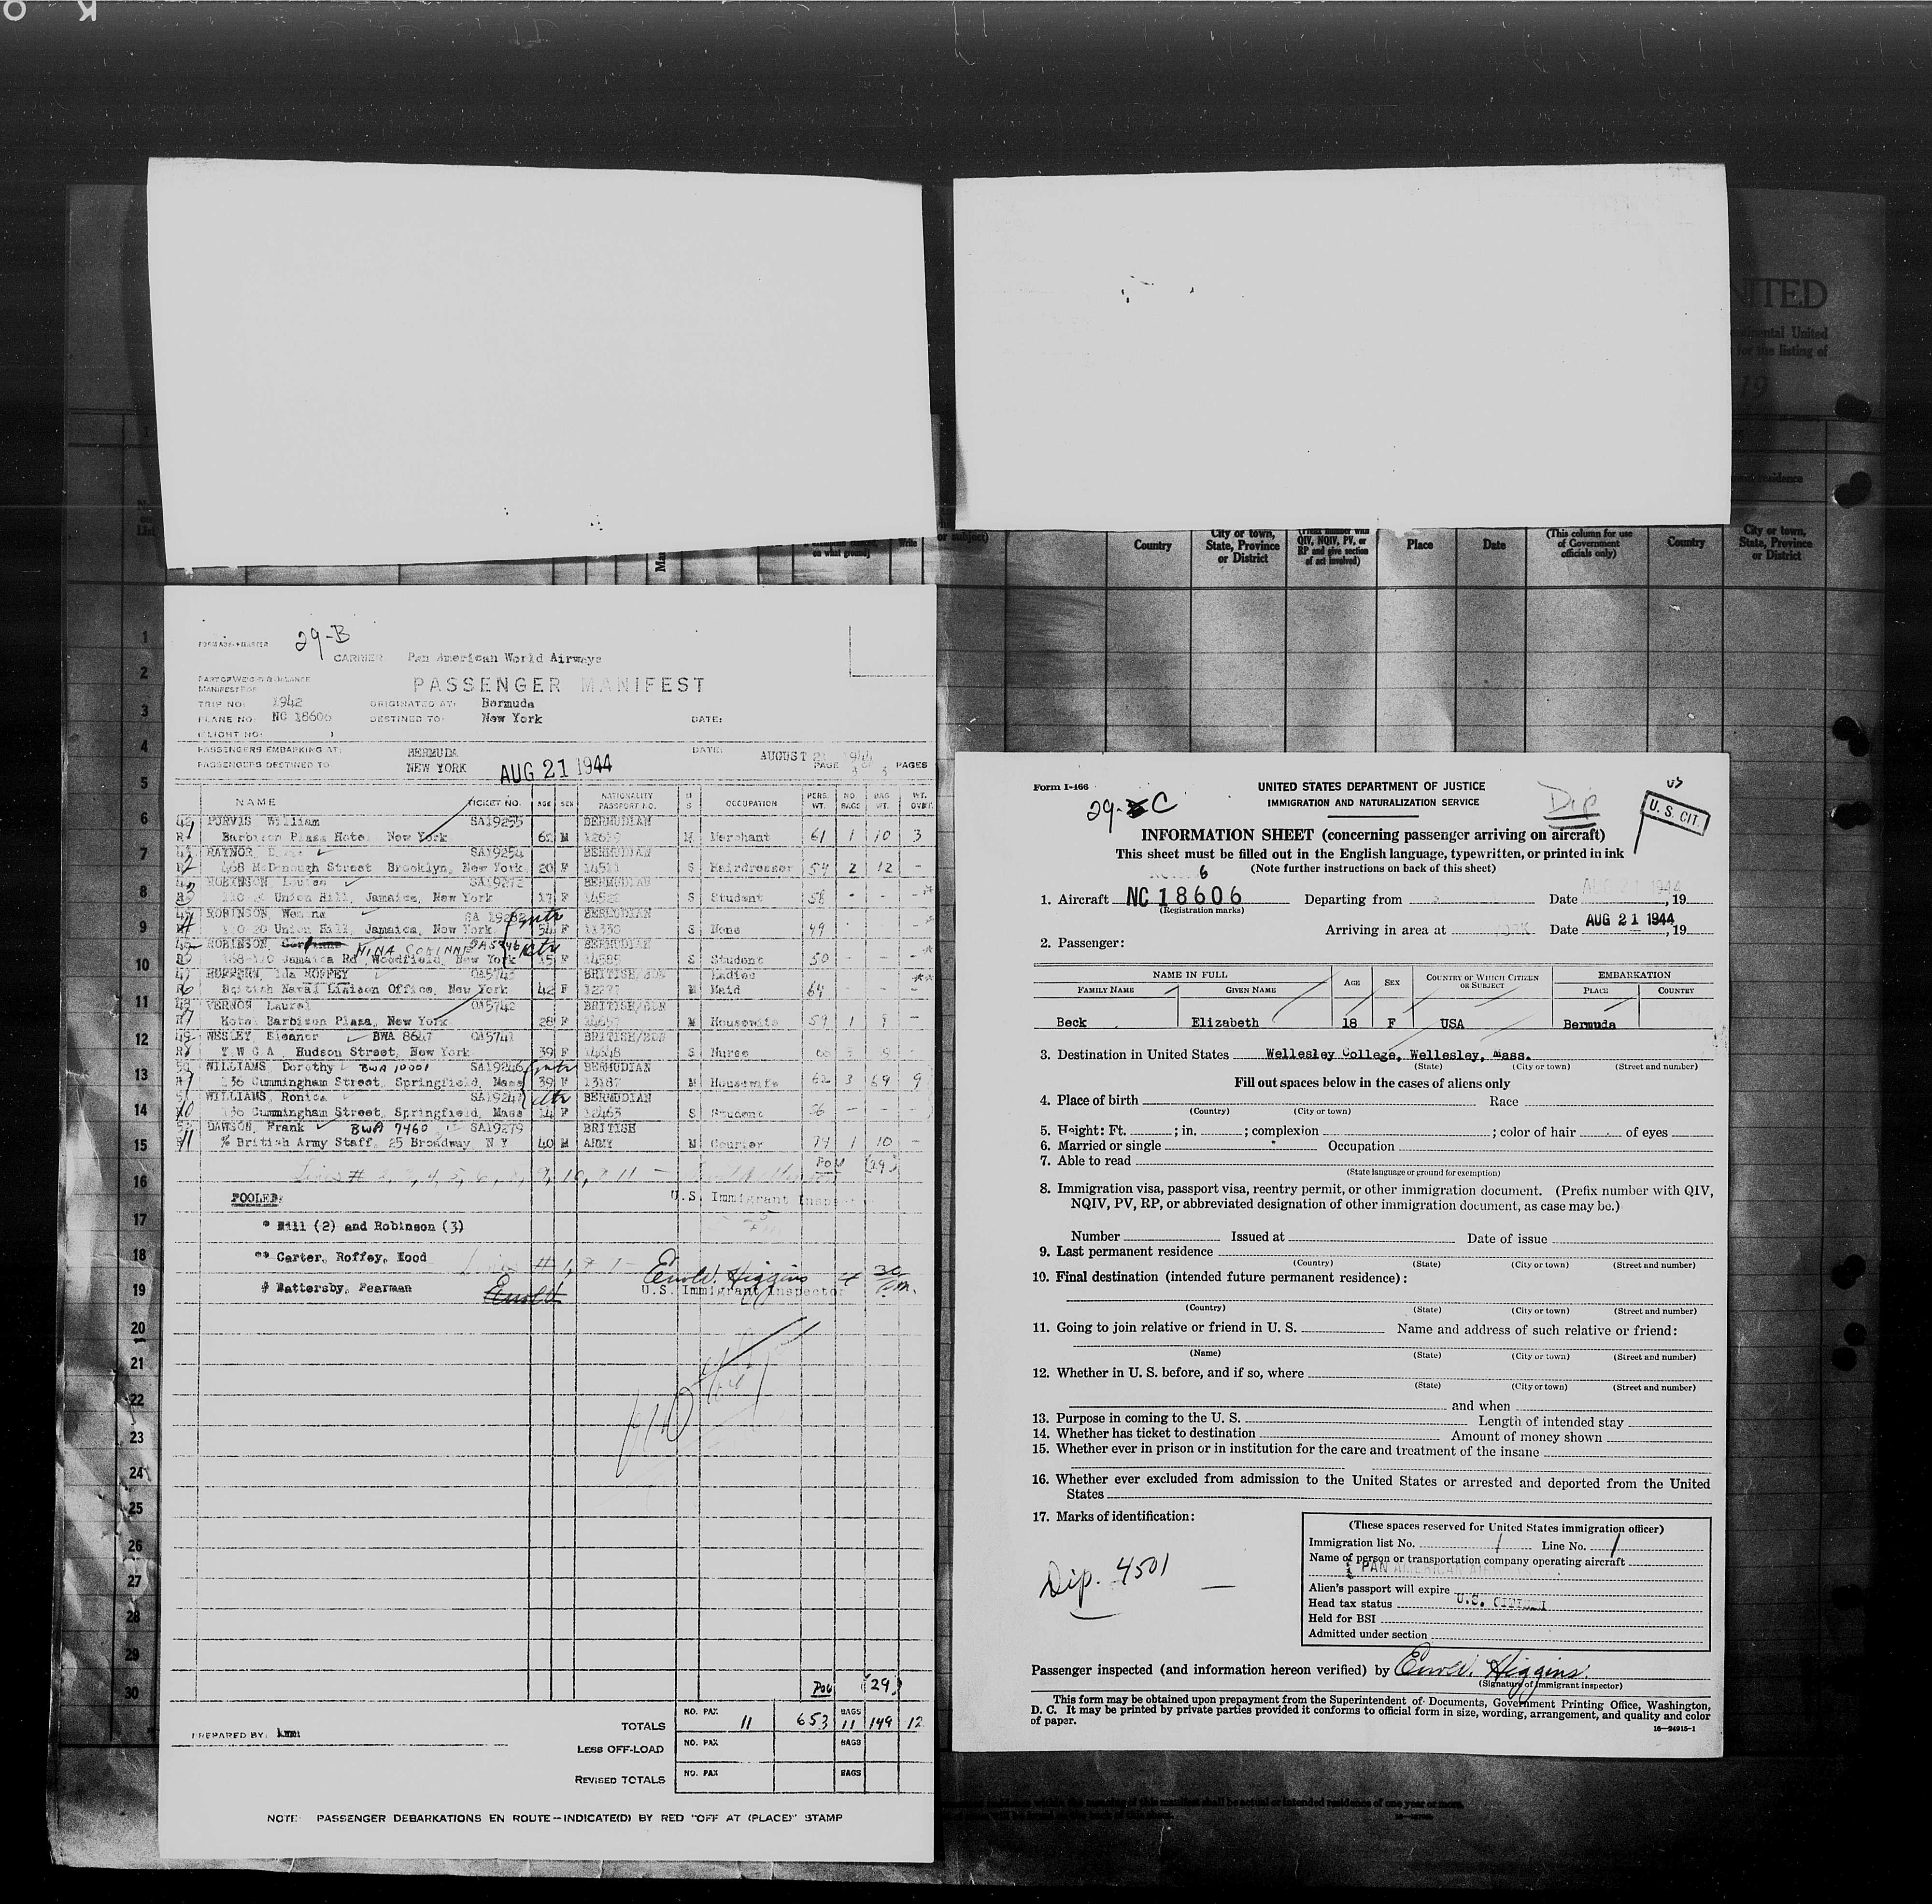 NITED
ntinental United
for the listing of
19
City or town,
State, Province
or District
Country
QIV, NQIV, PV, or
RP and give section
of act involved)
Place
Date
(This column for use
of Government
officials only)
Country
City or town,
State, Province
or District
29-B
CARRIER Pan American World Airways
PASSENGER MANIFEST
TRIP NO: 1942 ORIGINATED AT: Bermuda
PLANE NO: NC 18606 DESTINED TO: New York DATE:
FLIGHT NO:
PASSENGERS EMBARKING AT: BERMUDA DATE: AUGUST 21 1944
PASSENGERS DESTINED TO NEW YORK AUG 21 1944 PAGE 3 OF 3 PAGES
NAME TICKET NO. AGE SEX NATIONALITY PASSPORT NO. M S OCCUPATION PERS. WT. NO. BAGS BAG WT. WT. OVER.
PURVIS William SA19255 BERMUDIAN
1 Barbizon Plaza Hotel New York 62 M M Merchant 61 1 10 3
RAYNOR SA19254 BERMUDIAN
2 468 McDonough Street Brooklyn, New York 20 F 14511 S Hairdresser 54 2 12 -
ROBINSON SA19272 BERMUDIAN
3 Union Hill, Jamaica, New York 17 F 14522 S Student 58 - - -*
ROBINSON SA 19282 BERMUDIAN
4 110 20 Union Hill, Jamaica, New York 54 F 11330 S None 49 - - -
ROBINSON NINA CORINNE BERMUDIAN
5 Jamaica Rd Woodfield, New York 15 F 14585 S Student 50 - - -
Ida ROFFEY OA5743 BRITISH/BDN Ladies **
6 British Naval Liaison Office, New York 42 F M Maid 64 - - -
VERNON Laurel OA5742 BRITISH/BDN
7 Hotel Barbizon Plaza, New York 28 F M Housewife 59 1 9 -
WESLEY, Eleanor BWA 8647 OA5741 BRITISH/BDN
8 Y W C A Hudson Street, New York 39 F S Nurse
WILLIAMS Dorothy BWA 10001 SA19246 BERMUDIAN
9 136 Cummingham Street, Springfield, Mass 39 F 13187 M Housewife 62 3 69 9
WILLIAMS, Ronica SA19247 BERMUDIAN
10 136 Cummingham Street, Springfield, Mass 14 F 12463 S Student 56 - - -
DAWSON, Frank BWA 7460 SA19279 BRITISH
11 % British Army Staff, 25 Broadway, N.Y 40 M ARMY M Courier 79 1 10 -
Pool (29)
U.S. Immigrant Inspector
POOLED:
* Hill (2) and Robinson (3)
** Carter, Roffey, Hood
# Battersby, Pearman
U.S. Immigrant Inspector
4 30 P.M.
Pool (29)
TOTALS NO. PAX 11 653 BAGS 11 149 12
PREPARED BY:
LESS OFF-LOAD NO. PAX BAGS
REVISED TOTALS NO. PAX BAGS
NOTE: PASSENGER DEBARKATIONS EN ROUTE—INDICATE(D) BY RED "OFF AT (PLACE)" STAMP
1
2
3
4
5
6
7
8
9
10
11
12
13
14
15
16
17
18
19
20
21
22
23
24
25
26
27
28
29
30
Form I-466
29-C
UNITED STATES DEPARTMENT OF JUSTICE
IMMIGRATION AND NATURALIZATION SERVICE
Dip
U. S. CIT.
INFORMATION SHEET (concerning passenger arriving on aircraft)
This sheet must be filled out in the English language, typewritten, or printed in ink
(Note further instructions on back of this sheet)
1. Aircraft NC 18606 Departing from Date AUG 21 1944, 19
(Registration marks)
Arriving in area at Date AUG 21 1944, 19
2. Passenger:
NAME IN FULL AGE SEX COUNTRY OF WHICH CITIZEN OR SUBJECT EMBARKATION
FAMILY NAME GIVEN NAME PLACE COUNTRY
Beck Elizabeth 18 F USA Bermuda
3. Destination in United States Wellesley College, Wellesley, Mass.
(State) (City or town) (Street and number)
Fill out spaces below in the cases of aliens only
4. Place of birth Race
(Country) (City or town)
5. Height: Ft. ; in. ; complexion ; color of hair of eyes
6. Married or single Occupation
7. Able to read
(State language or ground for exemption)
8. Immigration visa, passport visa, reentry permit, or other immigration document. (Prefix number with QIV,
NQIV, PV, RP, or abbreviated designation of other immigration document, as case may be.)
Number Issued at Date of issue
9. Last permanent residence
(Country) (State) (City or town) (Street and number)
10. Final destination (intended future permanent residence):
(Country) (State) (City or town) (Street and number)
11. Going to join relative or friend in U. S. Name and address of such relative or friend:
(Name) (State) (City or town) (Street and number)
12. Whether in U. S. before, and if so, where
(State) (City or town) (Street and number)
and when
13. Purpose in coming to the U. S. Length of intended stay
14. Whether has ticket to destination Amount of money shown
15. Whether ever in prison or in institution for the care and treatment of the insane
16. Whether ever excluded from admission to the United States or arrested and deported from the United
States
17. Marks of identification:
Dip. 4501
(These spaces reserved for United States immigration officer)
Immigration list No. 1 Line No. 1
Name of person or transportation company operating aircraft
PAN AMERICAN AIRWAYS
Alien's passport will expire
Head tax status U.S. CITIZEN
Held for BSI
Admitted under section
Passenger inspected (and information hereon verified) by
(Signature of immigrant inspector)
This form may be obtained upon prepayment from the Superintendent of Documents, Government Printing Office, Washington,
D. C. It may be printed by private parties provided it conforms to official form in size, wording, arrangement, and quality and color
of paper.
16—24915-1